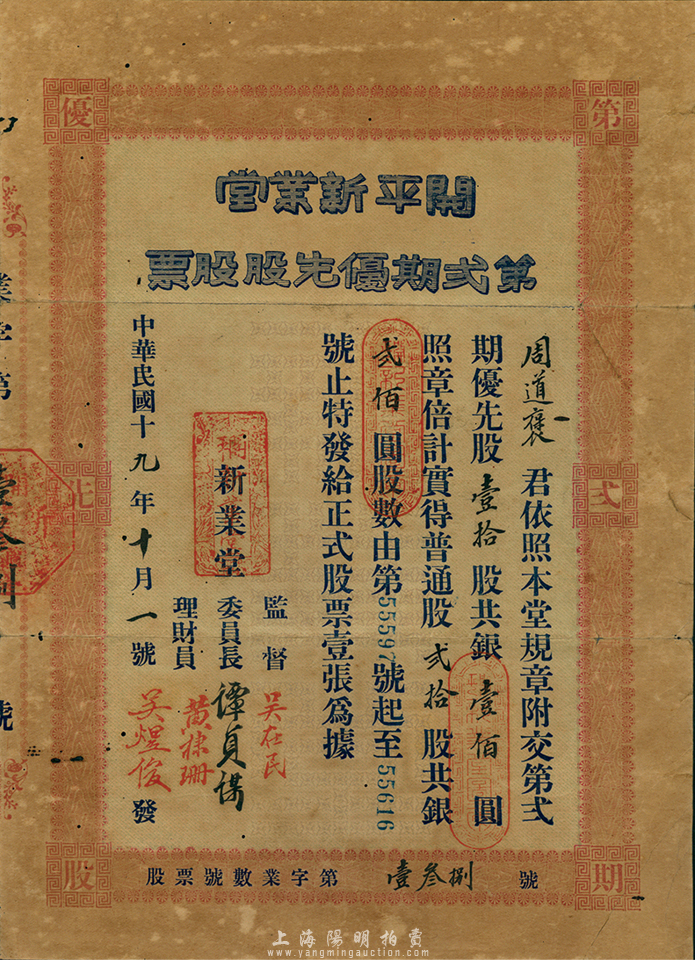 開平新業堂
第弍期優先股股票
周道褒君依照本堂規章附交第弍
期優先股壹拾股共銀壹佰圓
照章倍計實得普通股弍拾股共銀
弍佰圓股數由第55597號起至55616
號止特發給正式股票壹張爲據
監督 吴在民
新業堂 委員長 譚貞
理財員 黃
吴煜俊 發
中華民國十九年十月一號
股票號數業字第 壹叁捌 號
第
弍
期
優
先
股
業字第
壹叁捌
號
上海陽明拍賣
www.yangmingauction.com